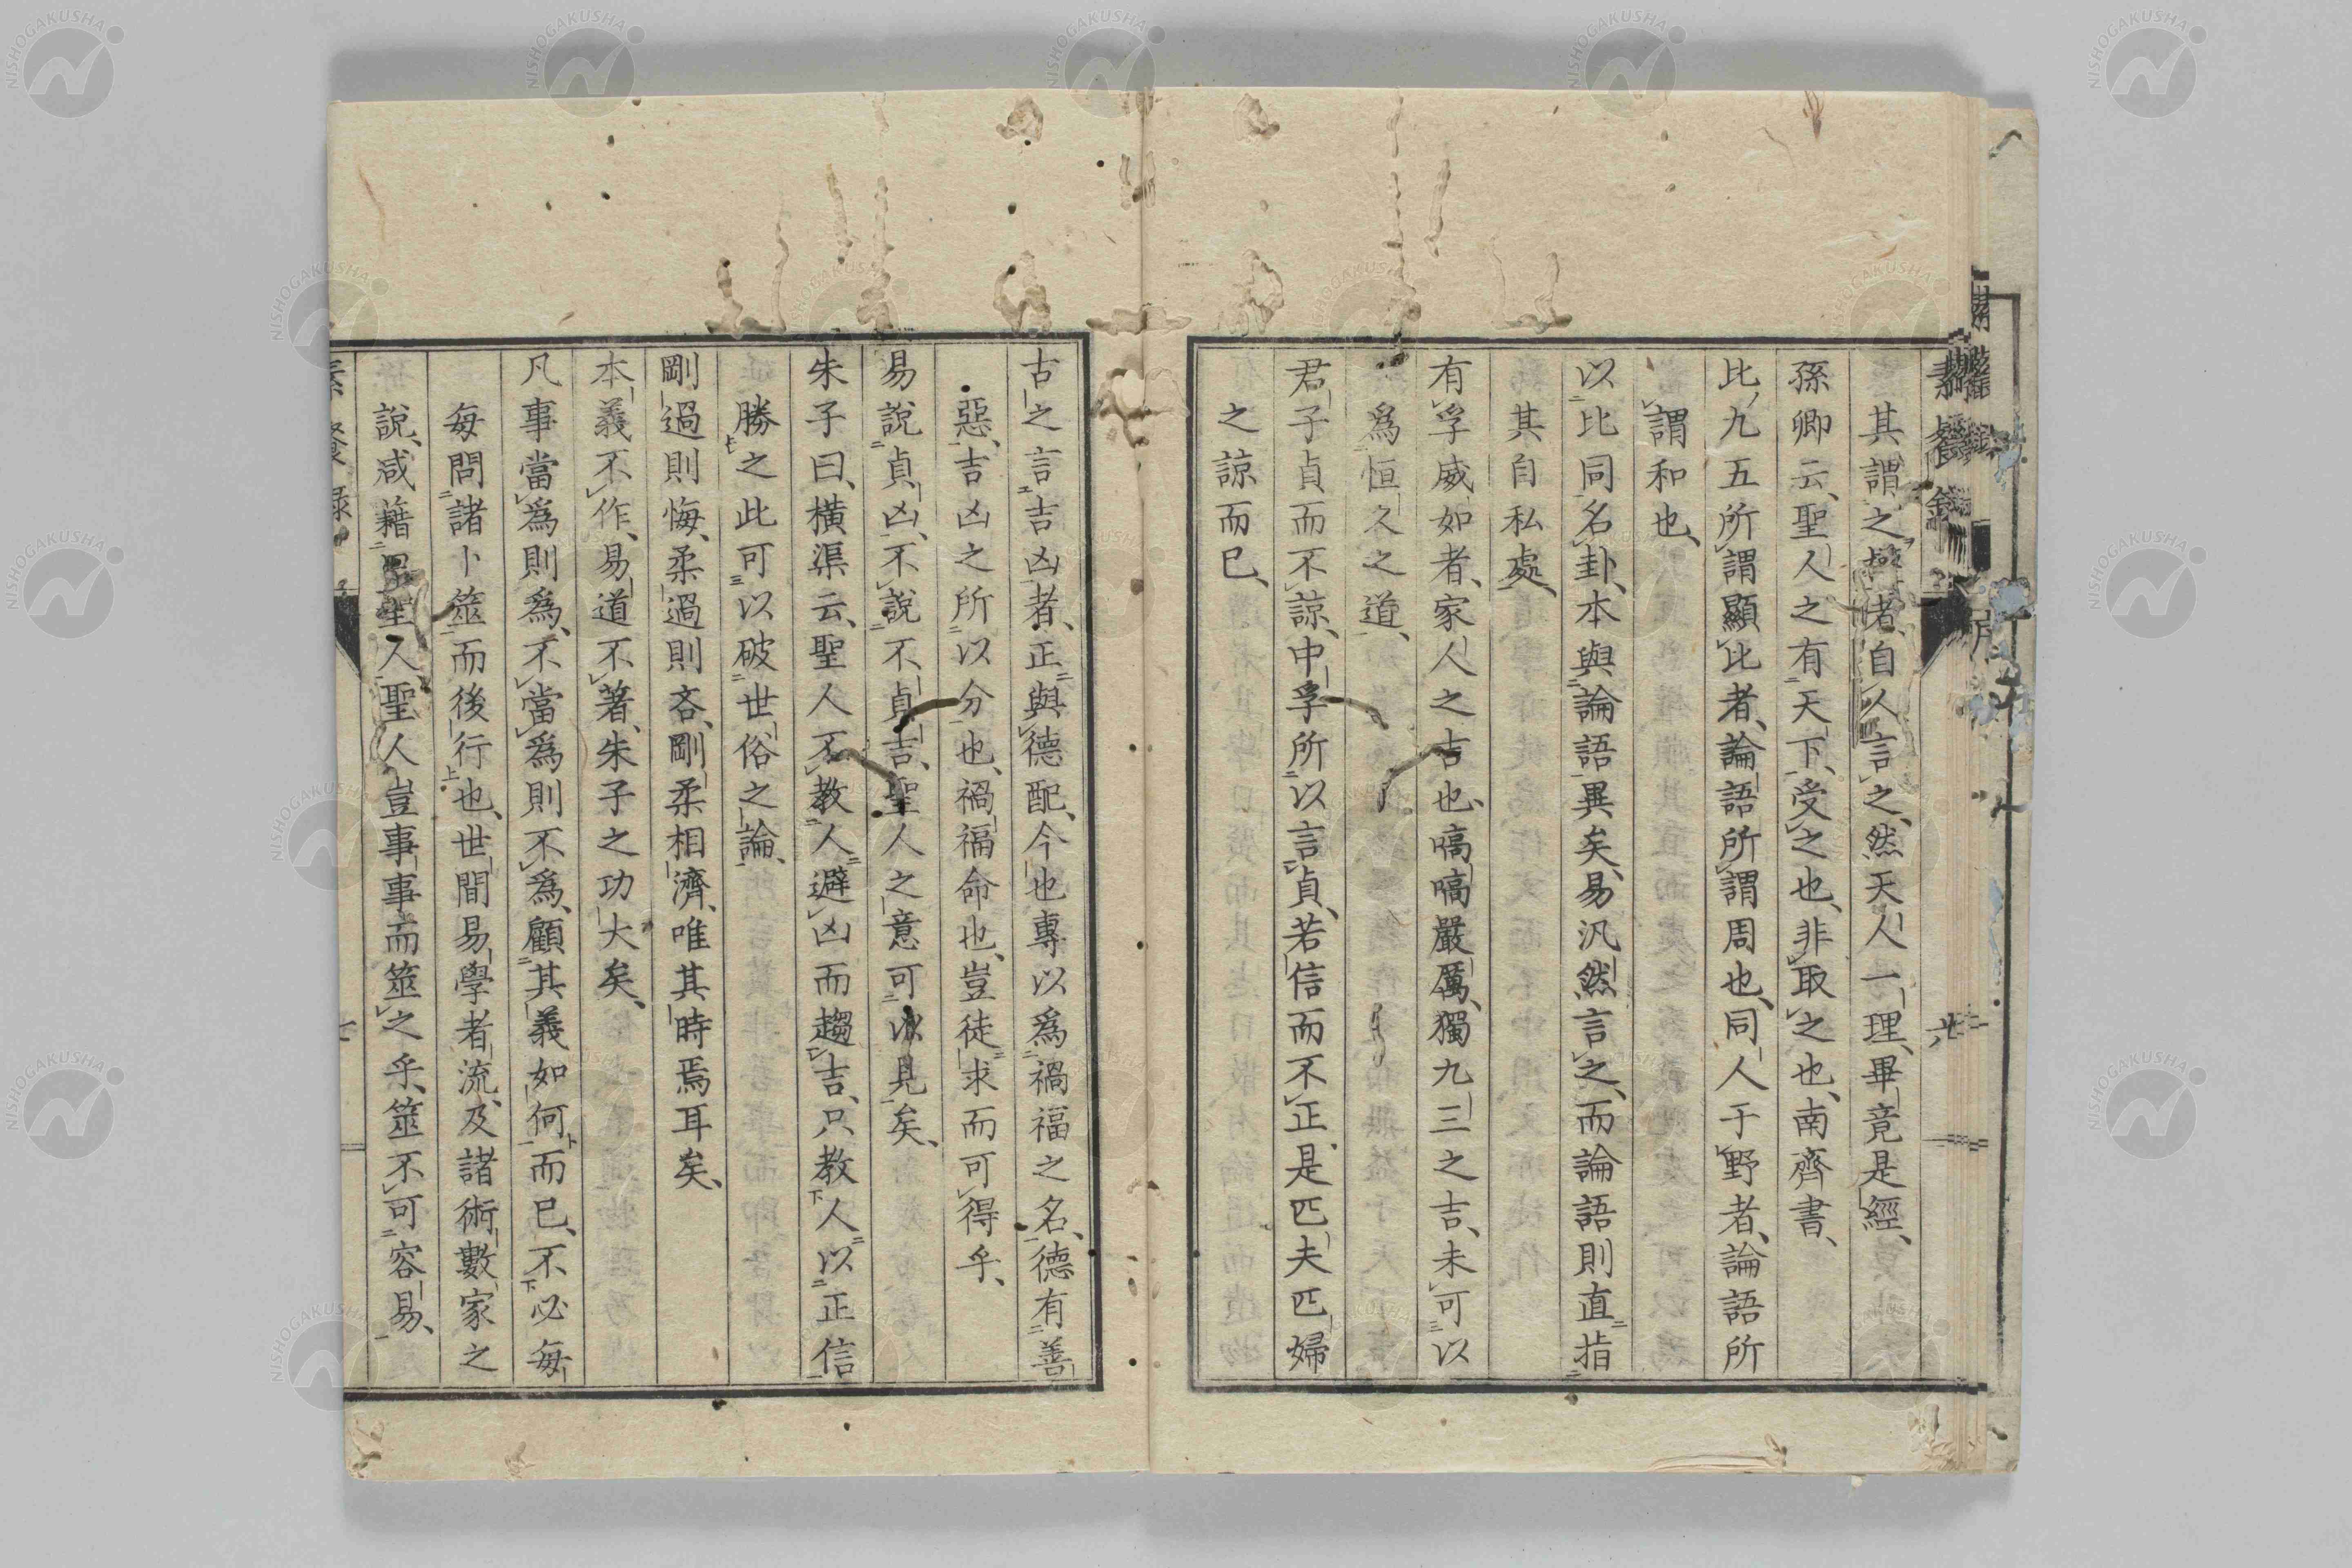 其謂之與者、自人言之、然天人一理、畢竟是經、
孫卿云、聖人之有天下、受之也、非取之也、南齊書、
比、九五所謂顯比者、論語所謂周也、同人于野者、論語所
謂和也、
以比同名卦、本與論語異矣、易汎然言之、而論語則直指
其自私處、
有孚威如者、家人之吉也、嗃嗃嚴厲、獨九三之吉、未可以
爲恒久之道、
君子貞而不諒、中孚所以言貞、若信而不正、是匹夫匹婦
之諒而已、
古之言吉凶者、正與德配、今也專以爲禍福之名、德有善
惡、吉凶之所以分也、禍福命也、豈徒求而可得乎、
易說貞凶、不說不貞吉、聖人之意可以見矣、
朱子曰、橫渠云、聖人不教人避凶而趨吉、只教人以正信
勝之此可以破世俗之論、
剛過則悔、柔過則吝、剛柔相濟、唯其時焉耳矣、
本義不作、易道不著、朱子之功大矣、
凡事當爲則爲、不當爲則不爲、顧其義如何而已、不必每
每問諸卜筮而後行也、世間易學者流、及諸術數家之
說、咸藉聖人、聖人豈事事而筮之乎、筮不可容易、
NISHOGAKUSHA